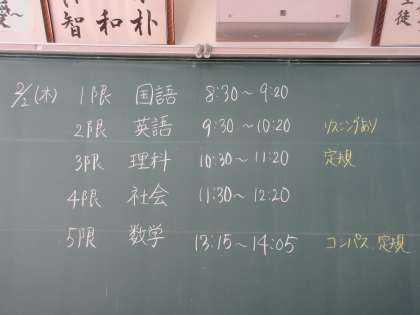 朴
和
智
2/2(木) 1限 国語 8:30～9:20
2限 英語 9:30～10:20 リスニングあり
3限 理科 10:30～11:20 定規
4限 社会 11:30～12:20
5限 数学 13:15～14:05 コンパス 定規